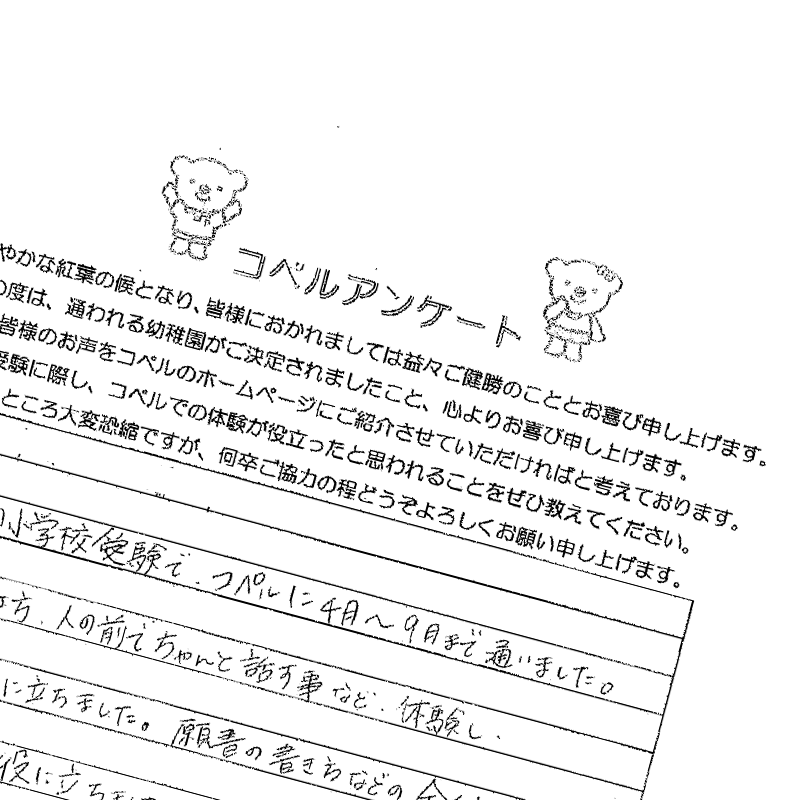 コペルアンケート
やかな紅葉の候となり、皆様におかれましては益々ご健勝のこととお喜び申し上げます。
の度は、通われる幼稚園がご決定されましたこと、心よりお喜び申し上げます。
皆様のお声をコペルのホームページにご紹介させていただければと考えております。
受験に際し、コペルでの体験が役立ったと思われることをぜひ教えてください。
ところ大変恐縮ですが、何卒ご協力の程どうぞよろしくお願い申し上げます。
小学校受験で、コペルに4月〜9月まで通いました。
方、人の前でちゃんと話す事など、体験し、
に立ちました。願書の書き方などの
役に立ちま